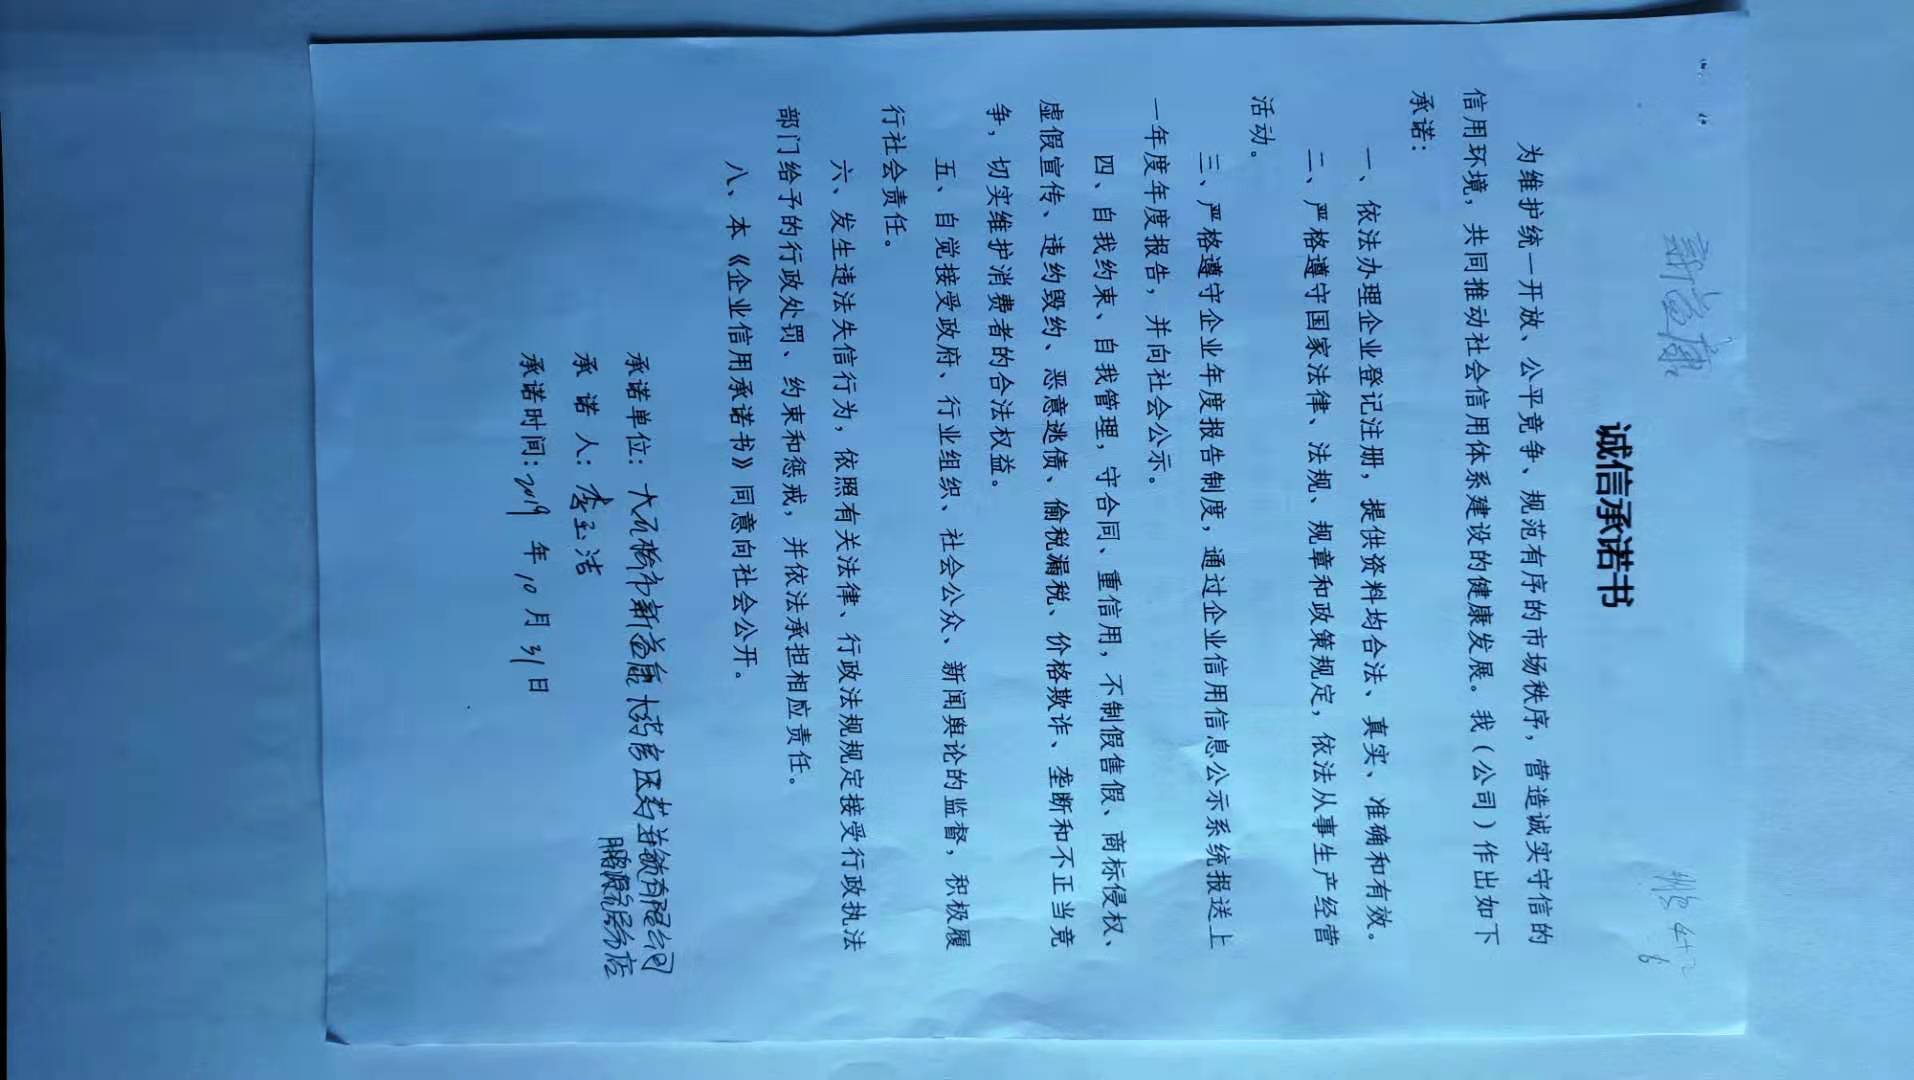 新益康
诚信承诺书
为维护统一开放、公平竞争、规范有序的市场秩序，营造诚实守信的
信用环境，共同推动社会信用体系建设的健康发展。我（公司）作出如下
承诺：
一、依法办理企业登记注册，提供资料均合法、真实、准确和有效。
二、严格遵守国家法律、法规、规章和政策规定，依法从事生产经营
活动。
三、严格遵守企业年度报告制度，通过企业信用信息公示系统报送上
一年度年度报告，并向社会公示。
四、自我约束、自我管理，守合同、重信用，不制假售假、商标侵权、
虚假宣传、违约毁约、恶意逃债、偷税漏税、价格欺诈、垄断和不正当竞
争，切实维护消费者的合法权益。
五、自觉接受政府、行业组织、社会公众、新闻舆论的监督，积极履
行社会责任。
六、发生违法失信行为，依照有关法律、行政法规规定接受行政执法
部门给予的行政处罚、约束和惩戒，并依法承担相应责任。
八、本《企业信用承诺书》同意向社会公开。
承诺单位：大石桥市新益康大药房医药连锁有限公司
药店
承 诺 人：李玉洁
承诺时间：2019 年 10 月 31 日